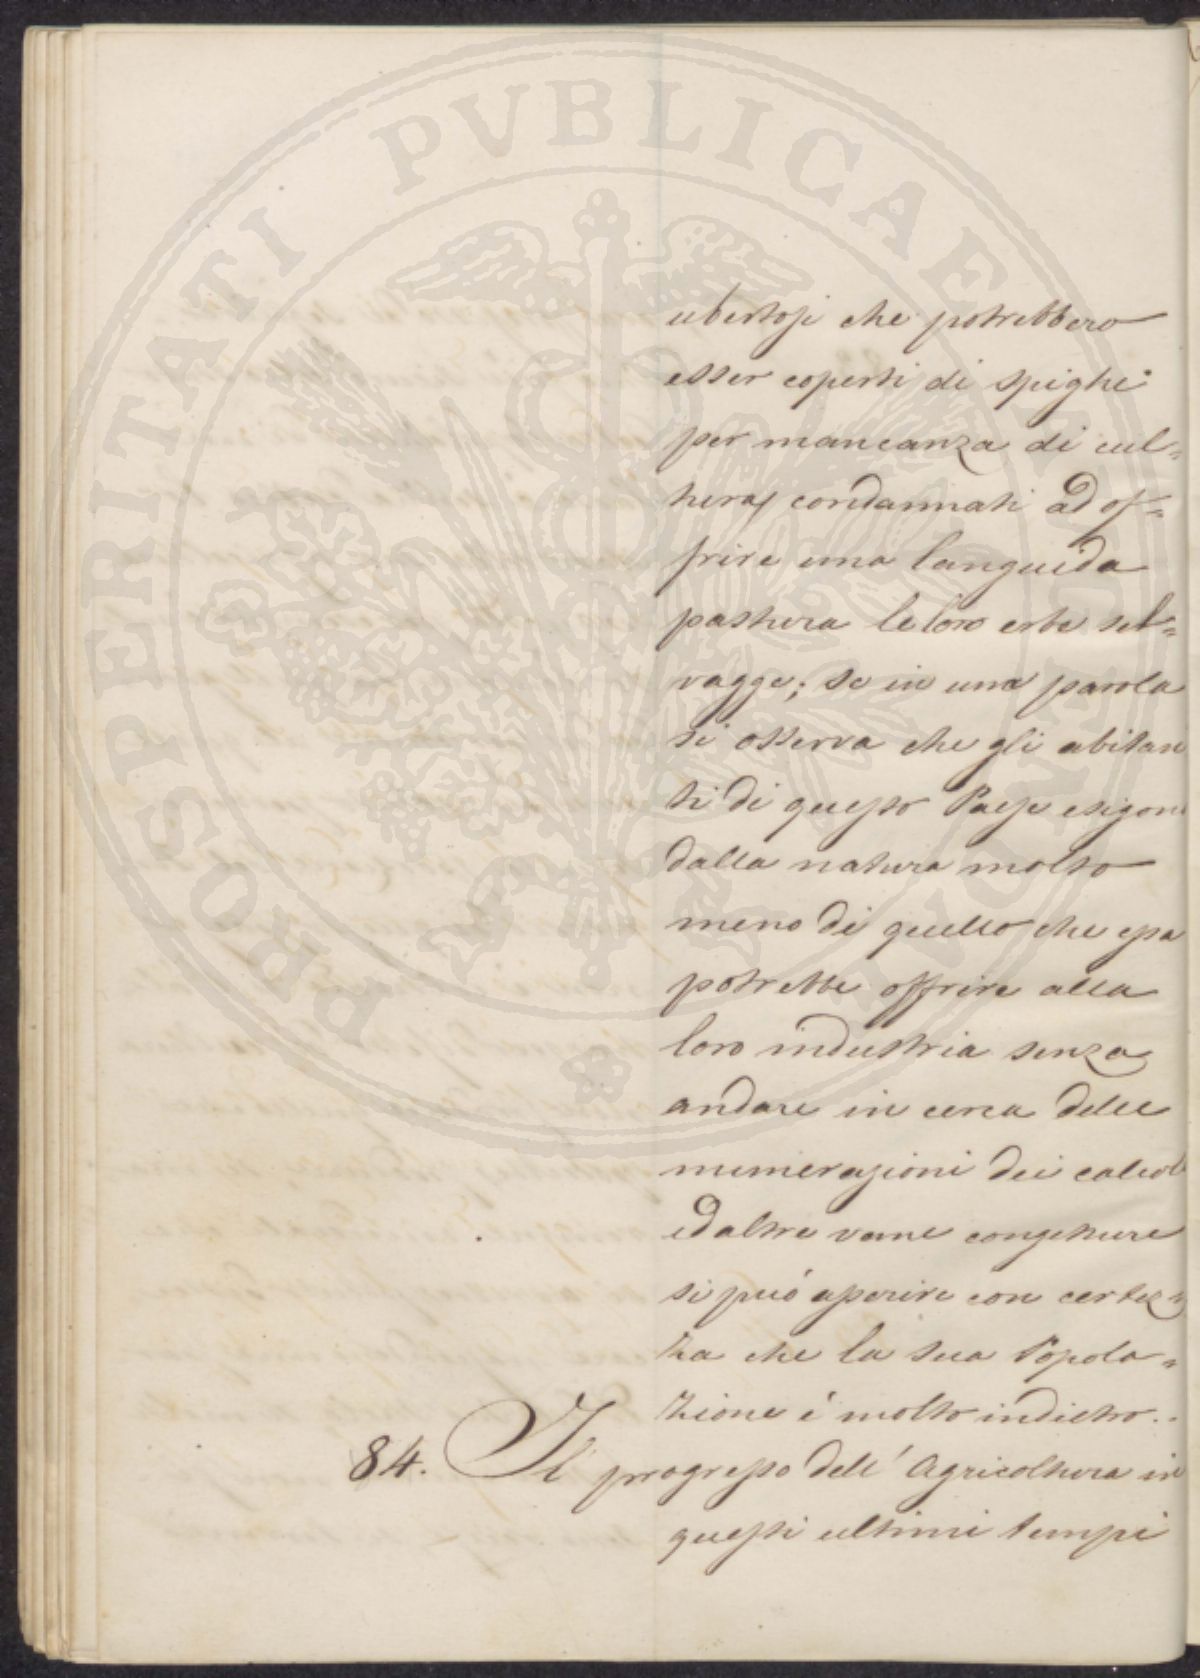 PROSPERITATI PVBLICAE
ubertosi che potrebbero
esser coperti di spighe
per mancanza di cul=
tura, condannati ad of=
frire una languida
pastura le loro erbe sel=
vagge; se in una parola
si osserva che gli abitan
ti di questo Paese esigono
dalla natura molto
meno di quello che essa
potrebbe offrire alla
loro industria senza
andare in cerca delle
numerazioni dei calcol
ed altre vane congetture
si può asserire con certez=
za che la sua Popola=
zione é molto indietro.
84. Il progresso dell' Agricoltura in
questi ultimi tempi